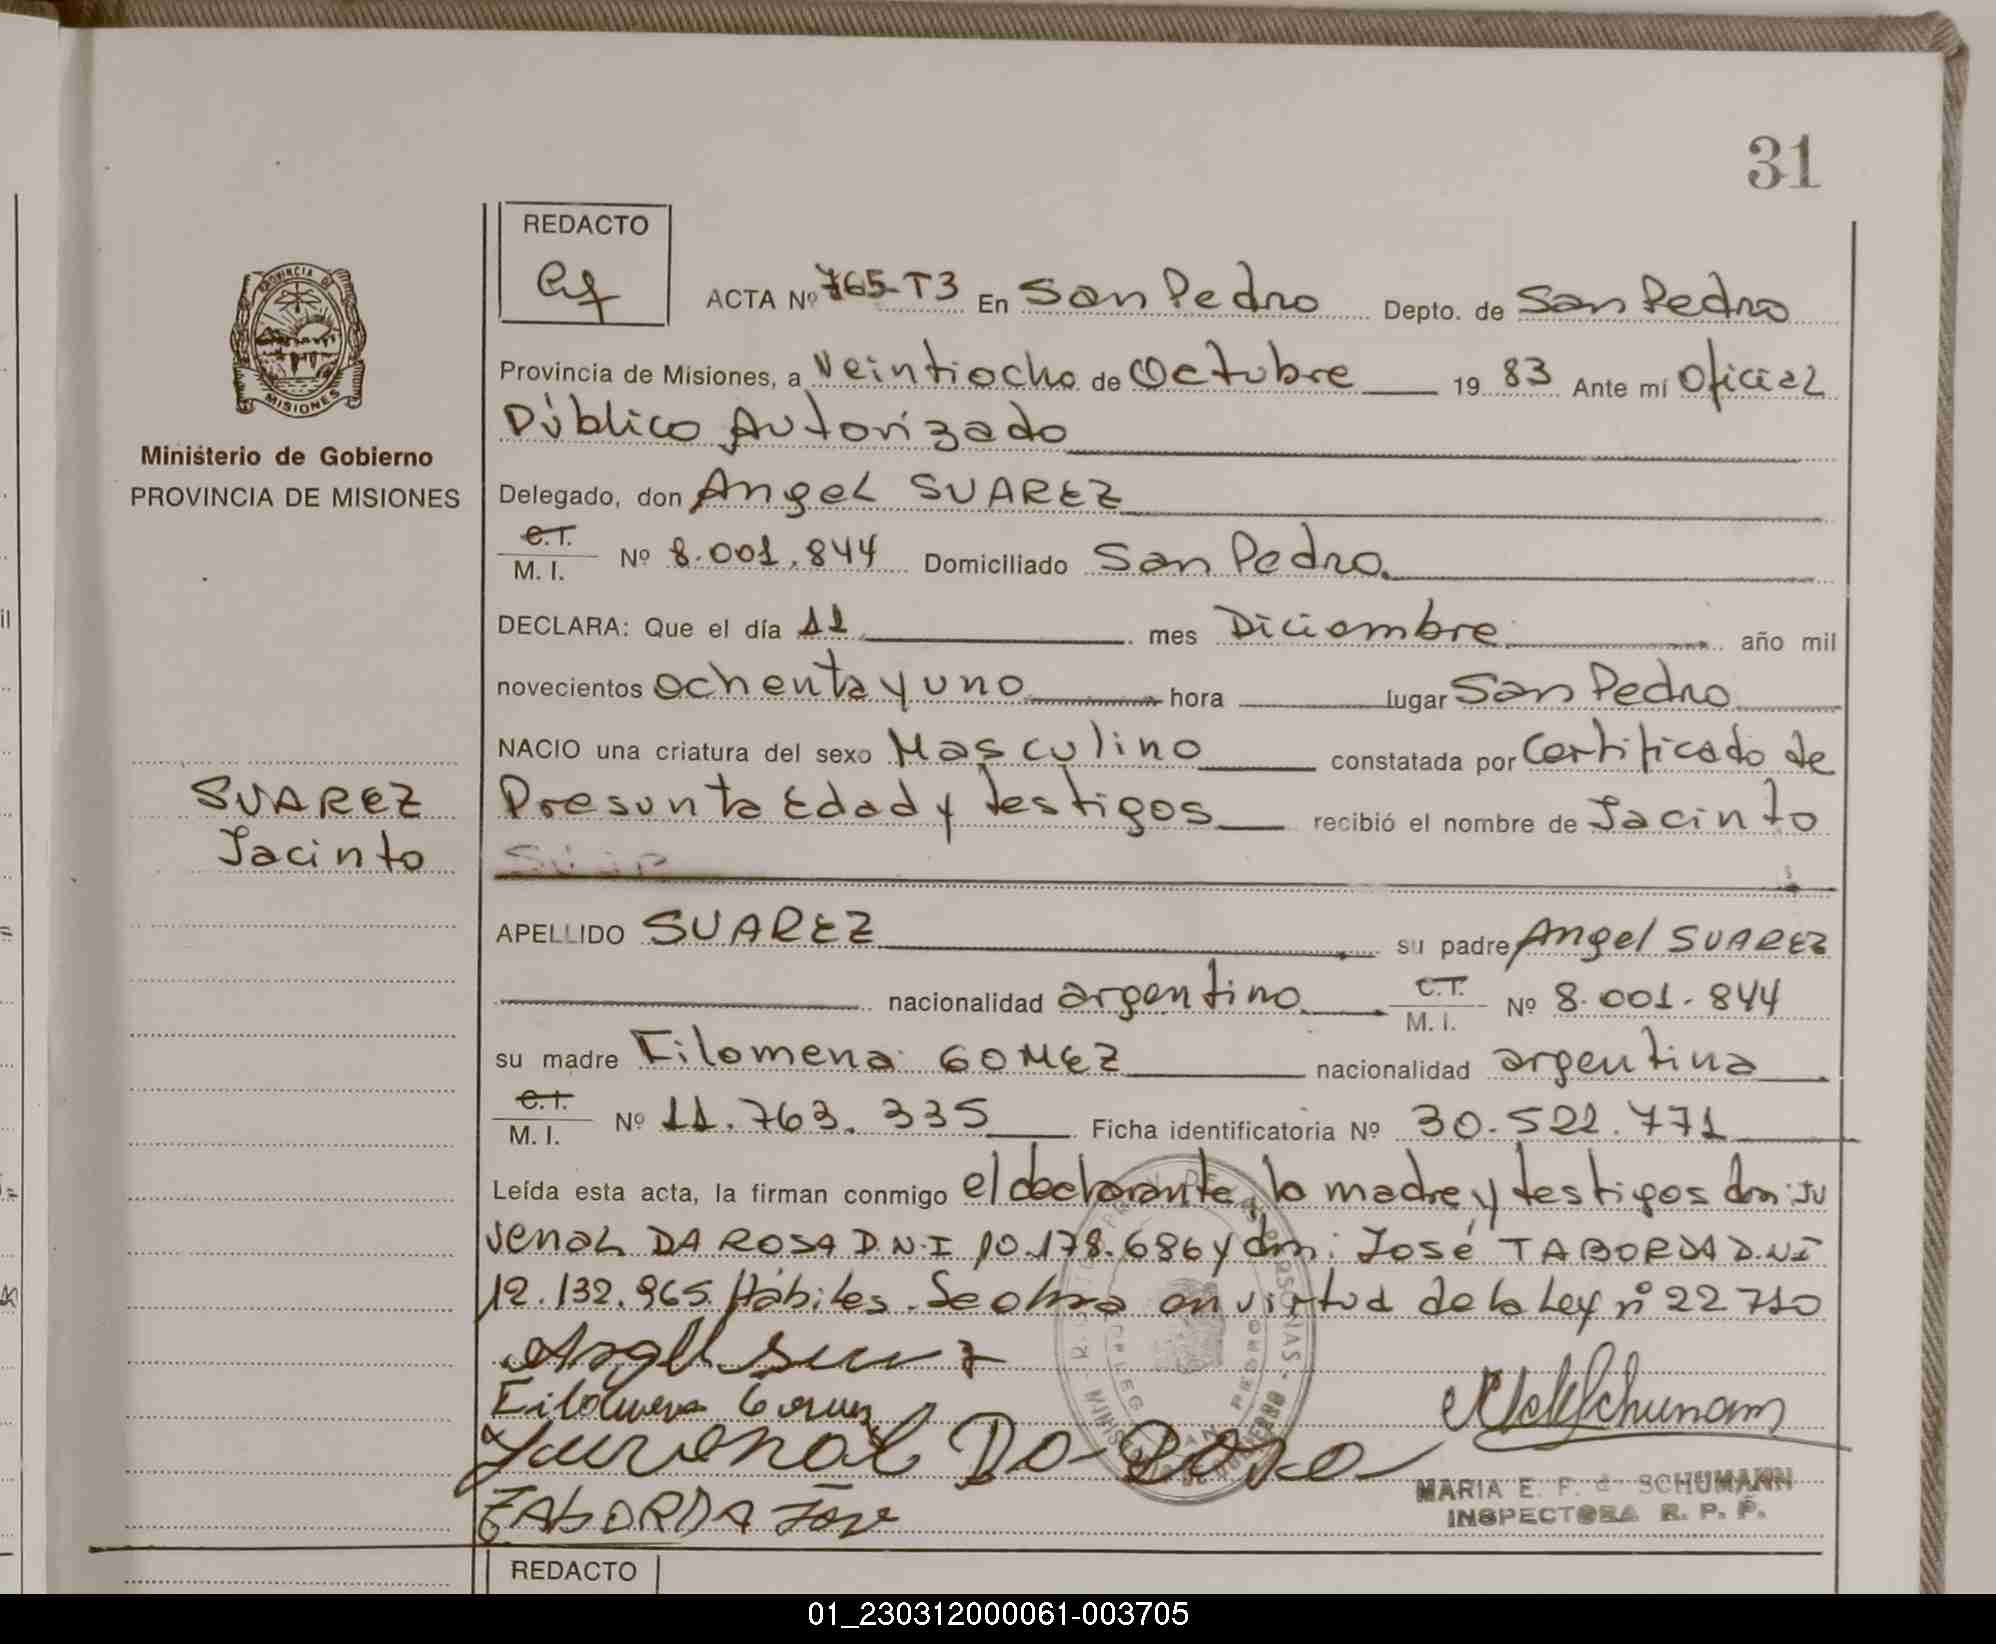 31
REDACTO
ACTA Nº 765-T3 En San Pedro Depto. de San Pedro
PROVINCIA DE
MISIONES
Provincia de Misiones, a Veintiocho de Octubre 19 83 Ante mí Oficial
Público Autorizado
Ministerio de Gobierno
PROVINCIA DE MISIONES
Delegado, don Angel SUAREZ
C.I.
M. I. Nº 8.001.844 Domiciliado San Pedro
DECLARA: Que el día 11 mes Diciembre año mil
novecientos ochenta y uno hora lugar San Pedro
NACIO una criatura del sexo Masculino constatada por Certificado de
SUAREZ
Jacinto
Presunta Edad y testigos recibió el nombre de Jacinto
APELLIDO SUAREZ su padre Angel SUAREZ
nacionalidad argentino C.I.
M. I. Nº 8.001.844
su madre Filomena GOMEZ nacionalidad argentina
C.I.
M. I. Nº 11.763.335 Ficha identificatoria Nº 30.522.771
Leída esta acta, la firman conmigo el declarante, la madre y testigos don: Ju
venal DA ROSA D.N.I 10.178.686 y don: José TABORDA D.NI
12.132.965 Hábiles. Se obra en virtud de la Ley nº 22710
Angel Suarez
Filomena Gomez
Juvenal Da Rosa
TABORDA José
MARIA E. F. de SCHUMANN
INSPECTORA R. P. P.
REDACTO
01_230312000061-003705